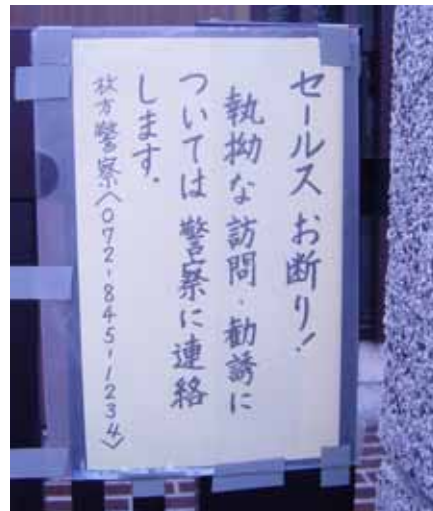 セールスお断り!
執拗な訪問・勧誘に
ついては警察に連絡
します.
枚方警察〈072-845-1234〉